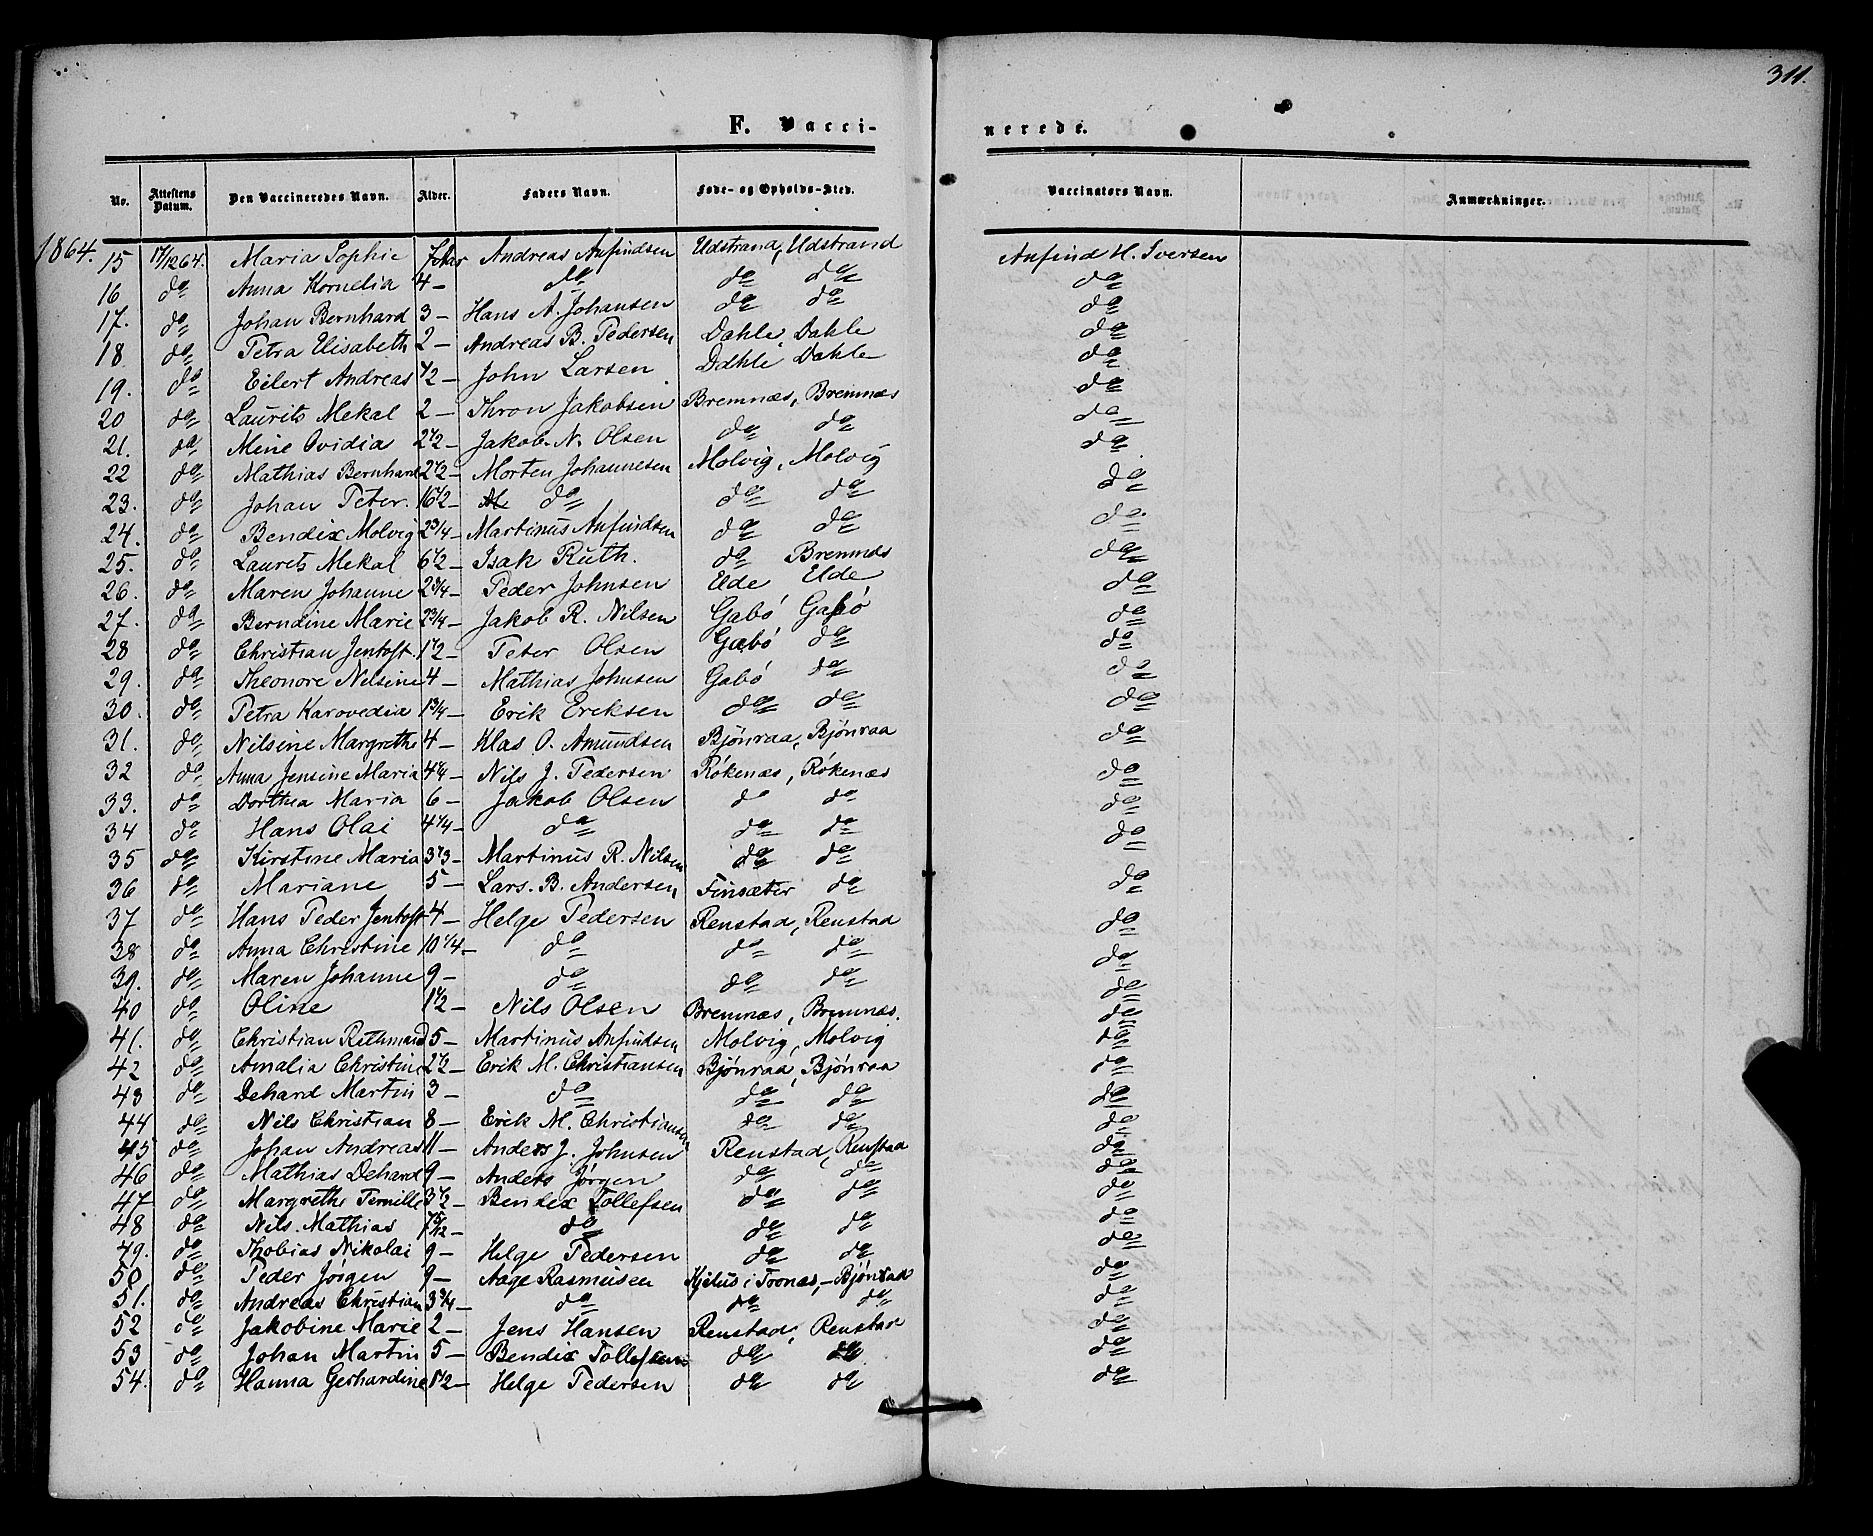 311.
F. Vaccinerede.
No. | Attestens Datum. | Den Vaccineredes Navn. | Alder. | Faders Navn. | Føde- og Opholds-Sted. | Vaccinators Navn. | Anmærkninger.
1864. 15 | 17/12 64. | Maria Sophie | Andreas Anfindsen | Udstrand, Udstrand | Anfind H. Iversen
16 | do | Anna Kornelia | 4 – | do | do do | do
17. | do | Johan Bernhard | 3 – | Hans A. Johansen | do do | do
18 | do | Petra Elisabeth | 2 – | Andreas B. Pedersen | Dahle, Dahle | do
19. | do | Eilert Andreas | 1/2 – | John Larsen | Dahle Dahle | do
20 | do | Laurits Mekal | 2 – | Thron Jakobsen | Bremnæs, Bremnæs | do
21. | do | Mine Ovidia | 2 1/2 – | Jakob N. Olsen | do do | do
22 | do | Mathias Bernhard | 2 1/2 – | Morten Johannesen | Molvig, Molvig | do
23. | do | Johan Peter. | 16 1/2 – | do | do do | do
24. | do | Bendix Molvig | 2 3/4 – | Martinus Anfindsen | do do | do
25. | do | Laurits Mekal | 6 1/2 – | Isak Ruth. | do Bremnæs | do
26. | do | Maren Johanne | 2 3/4 – | Peder Johnsen | Elde Elde | do
27. | do | Berndine Marie | 2 3/4 – | Jakob R. Nilsen | Gabó Gabó | do
28 | do | Christian Jentoft. | 1 1/2 – | Peter Olsen | Gabó do | do
29. | do | Theonore Nelsine | 4 – | Mathias Johnsen | Gabó do | do
30. | do | Petra Karovedia | 1 3/4 – | Erik Eriksen | do do | do
31. | do | Nilsine Margrethe | 4 – | Klas O. Amundsen | Bjónraa, Bjónraa | do
32 | do | Anna Jensine Maria | 4 1/4 – | Nils J. Pedersen | Rókenæs, Rókenæs | do
33. | do | Dorthea Maria | 6 – | Jakob Olsen | do do | do
34 | do | Hans Olai | 4 1/4 – | do | do do | do
35 | do | Kirstine Maria | 3 1/3 – | Martinus R. Nilsen | do do | do
36 | do | Mariane | 5 – | Lars. B. Andersen | Finsæter do | do
37 | do | Hans Peder Jentoft | 4 – | Helge Pedersen | Renstad, Renstad | do
38 | do | Anna Christine | 10 1/4 – | do | do do | do
39. | do | Maren Johanne | 9 – | do | do do | do
40 | do | Oline | 1 1/2 – | Nils Olsen | Bremnæs, Bremnæs. | do
41. | do | Christian | 5 – | Martinus Anfindsen | Molvig, Molvig | do
42 | do | Amalia Christine | 2 1/2 – | Erik M. Christiansen | Bjónraa, Bjónraa | do
43 | do | Dehard Martin | 3 – | do | do do | do
44 | do | Nils Christian | 8 – | Erik M. Christiansen | do do | do
45 | do | Johan Andreas | 11 – | Anders J. Johnsen | Renstad, Renstad | do
46 | do | Mathias Dehard | 9 – | Anders Jørgen | do do | do
47 | do | Margrethe Pernille | 3 1/2 – | Bendix Tollefsen | do do | do
48 | do | Nils. Mathias | do | do do | do
49. | do | Thobias Nikolai | 9 – | Helge Pedersen | do do | do
50 | do | Peder Jórgen | 9 – | Aage Rasmusen | – Bjónraa | do
51. | do | Andreas Christian | 3 3/4 – | do | do do | do
52 | do | Jakobine Marie | 2 – | Jens Hansen | Renstad, Renstad | do
53 | do | Johan Martin | 5 – | Bendix Tollefsen | do do | do
54. | do | Hanna Gerhardine | 1 1/2 – | Helge Pedersen | do do | do